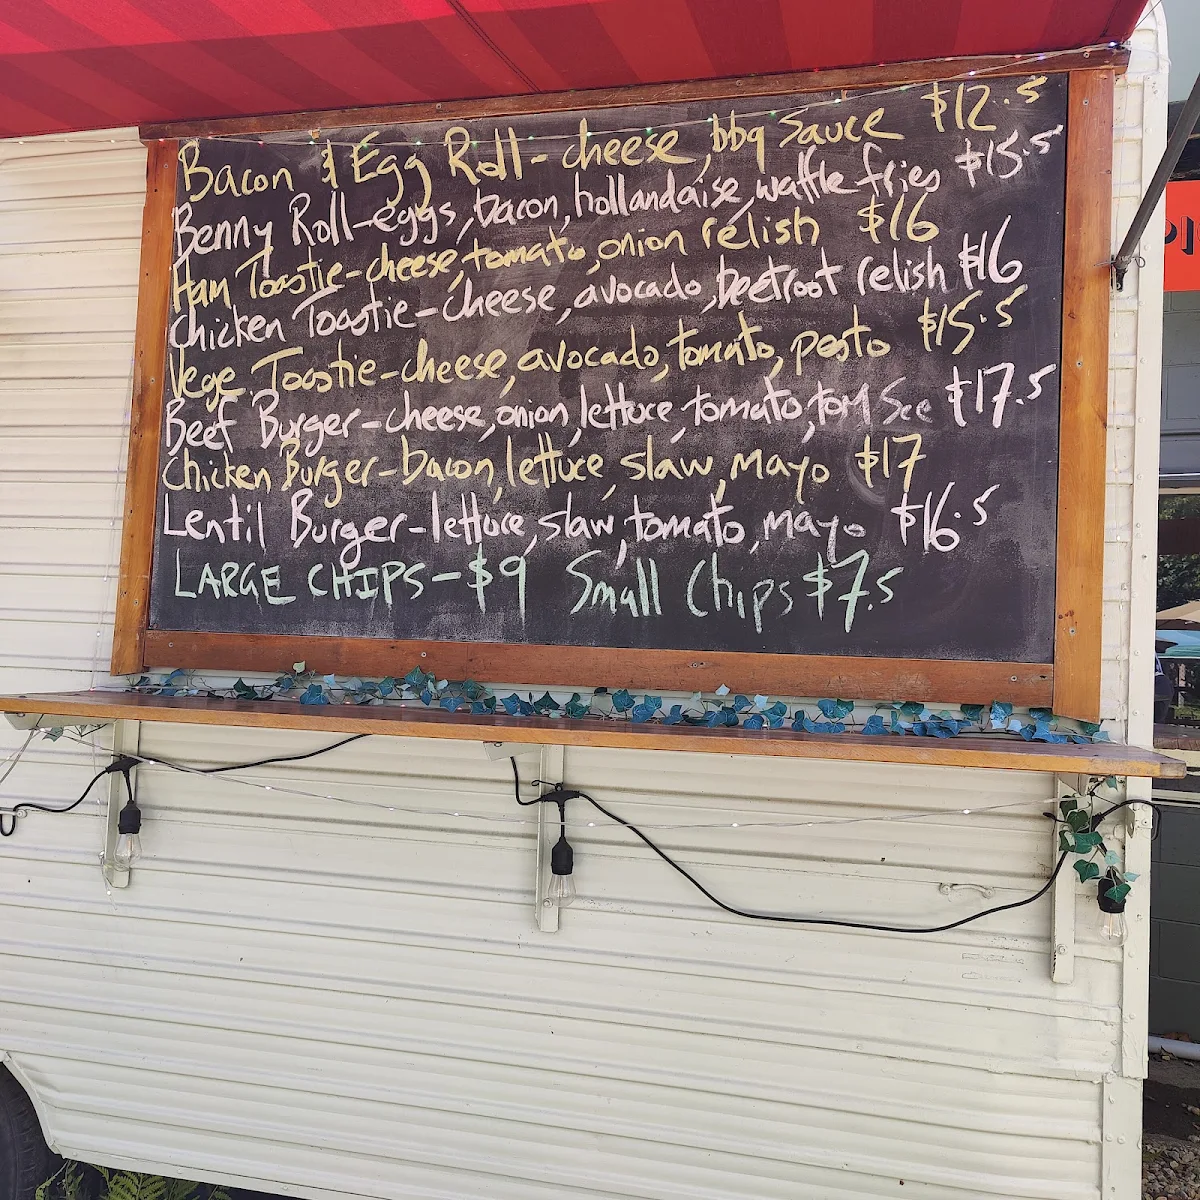 Bacon & Egg Roll - cheese, bbq sauce $12.5
Benny Roll - eggs, bacon, hollandaise, waffle fries $15.5
Ham Toastie - cheese, tomato, onion relish $16
Chicken Toastie - cheese, avocado, beetroot relish $16
Vege Toastie - cheese, avocado, tomato, pesto $15.5
Beef Burger - cheese, onion, lettuce, tomato, tom See $17.5
Chicken Burger - bacon, lettuce, slaw, mayo $17
Lentil Burger - lettuce, slaw, tomato, mayo $16.5
LARGE CHIPS - $9 Small Chips $7.5